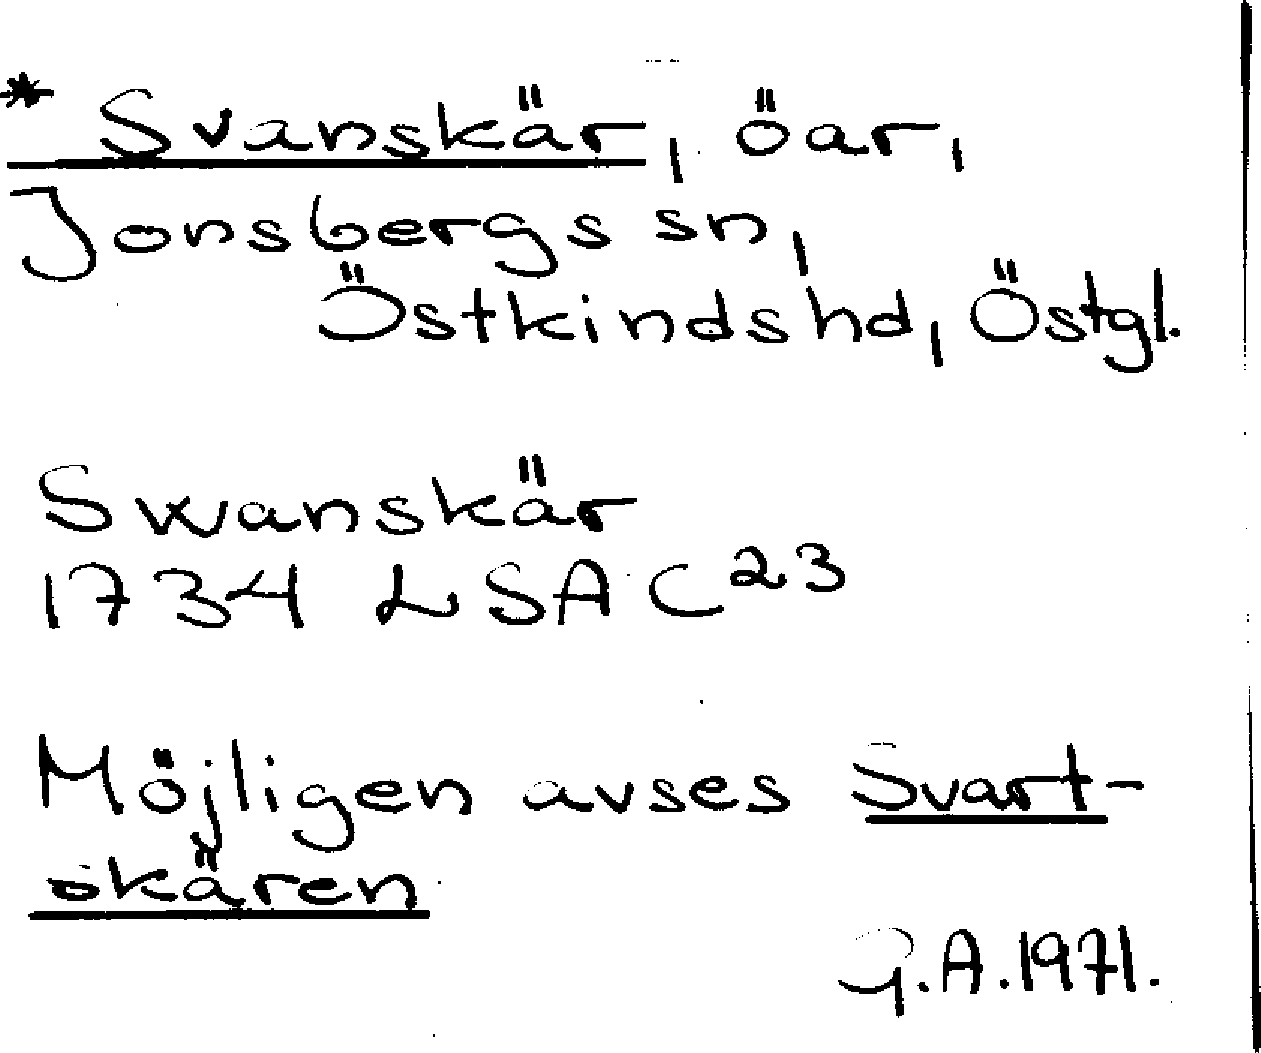 * Svanskär, öar,
Jonsbergs sn,
Östkinds hd, Östgl.
Swanskär
1734 LSA C23
Möjligen avses Svart-
skären
G.A.1971.